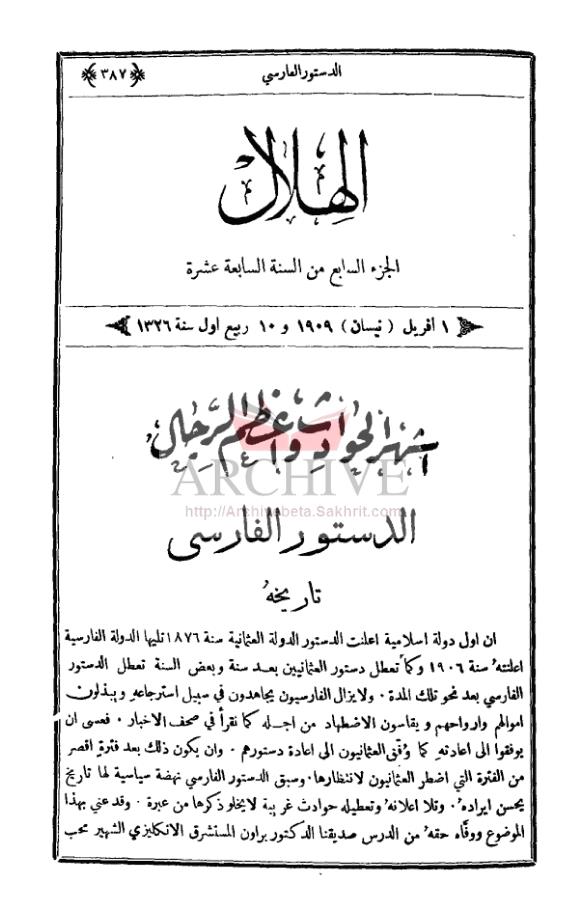 الدستور الفارسي
﴿٣٨٧﴾
الهلال
الجزء السابع من السنة السابعة عشرة
١ افريل ( نيسان ) ١٩٠٩ و ١٠ ربيع اول سنة ١٣٢٦
اشهر الحوادث واعظم الرجال
ARCHIVE
http://Archivebeta.Sakhrit.com
الدستور الفارسي
تاريخهُ
ان اول دولة اسلامية اعلنت الدستور الدولة العثمانية سنة ١٨٧٦ تليها الدولة الفارسية
اعلنتهُ سنة ١٩٠٦ وكما تعطل دستور العثمانيين بعد سنة وبعض السنة تعطل الدستور
الفارسي بعد نحو تلك المدة ٠ ولا يزال الفارسيون يجاهدون في سبيل استرجاعهِ ويبذلون
اموالهم وارواحهم ويقاسون الاضطهاد من اجله كما نقرأ في صحف الاخبار ٠ فعسى ان
يوفقوا الى اعادتهِ كما وُفق العثمانيون الى اعادة دستورهم ٠ وان يكون ذلك بعد فترةٍ اقصر
من الفترة التي اضطر العثمانيون لانتظارها ٠ وسبق الدستور الفارسي نهضة سياسية لها تاريخ
يحسن ايراده ُ ٠ وتلا اعلانهُ وتعطيله حوادث غريبة لا يخلو ذكرها من عبرة ٠ وقد عني بهذا
الموضوع ووفّاه حقهُ من الدرس صديقنا الدكتور براون المستشرق الانكليزي الشهير محب